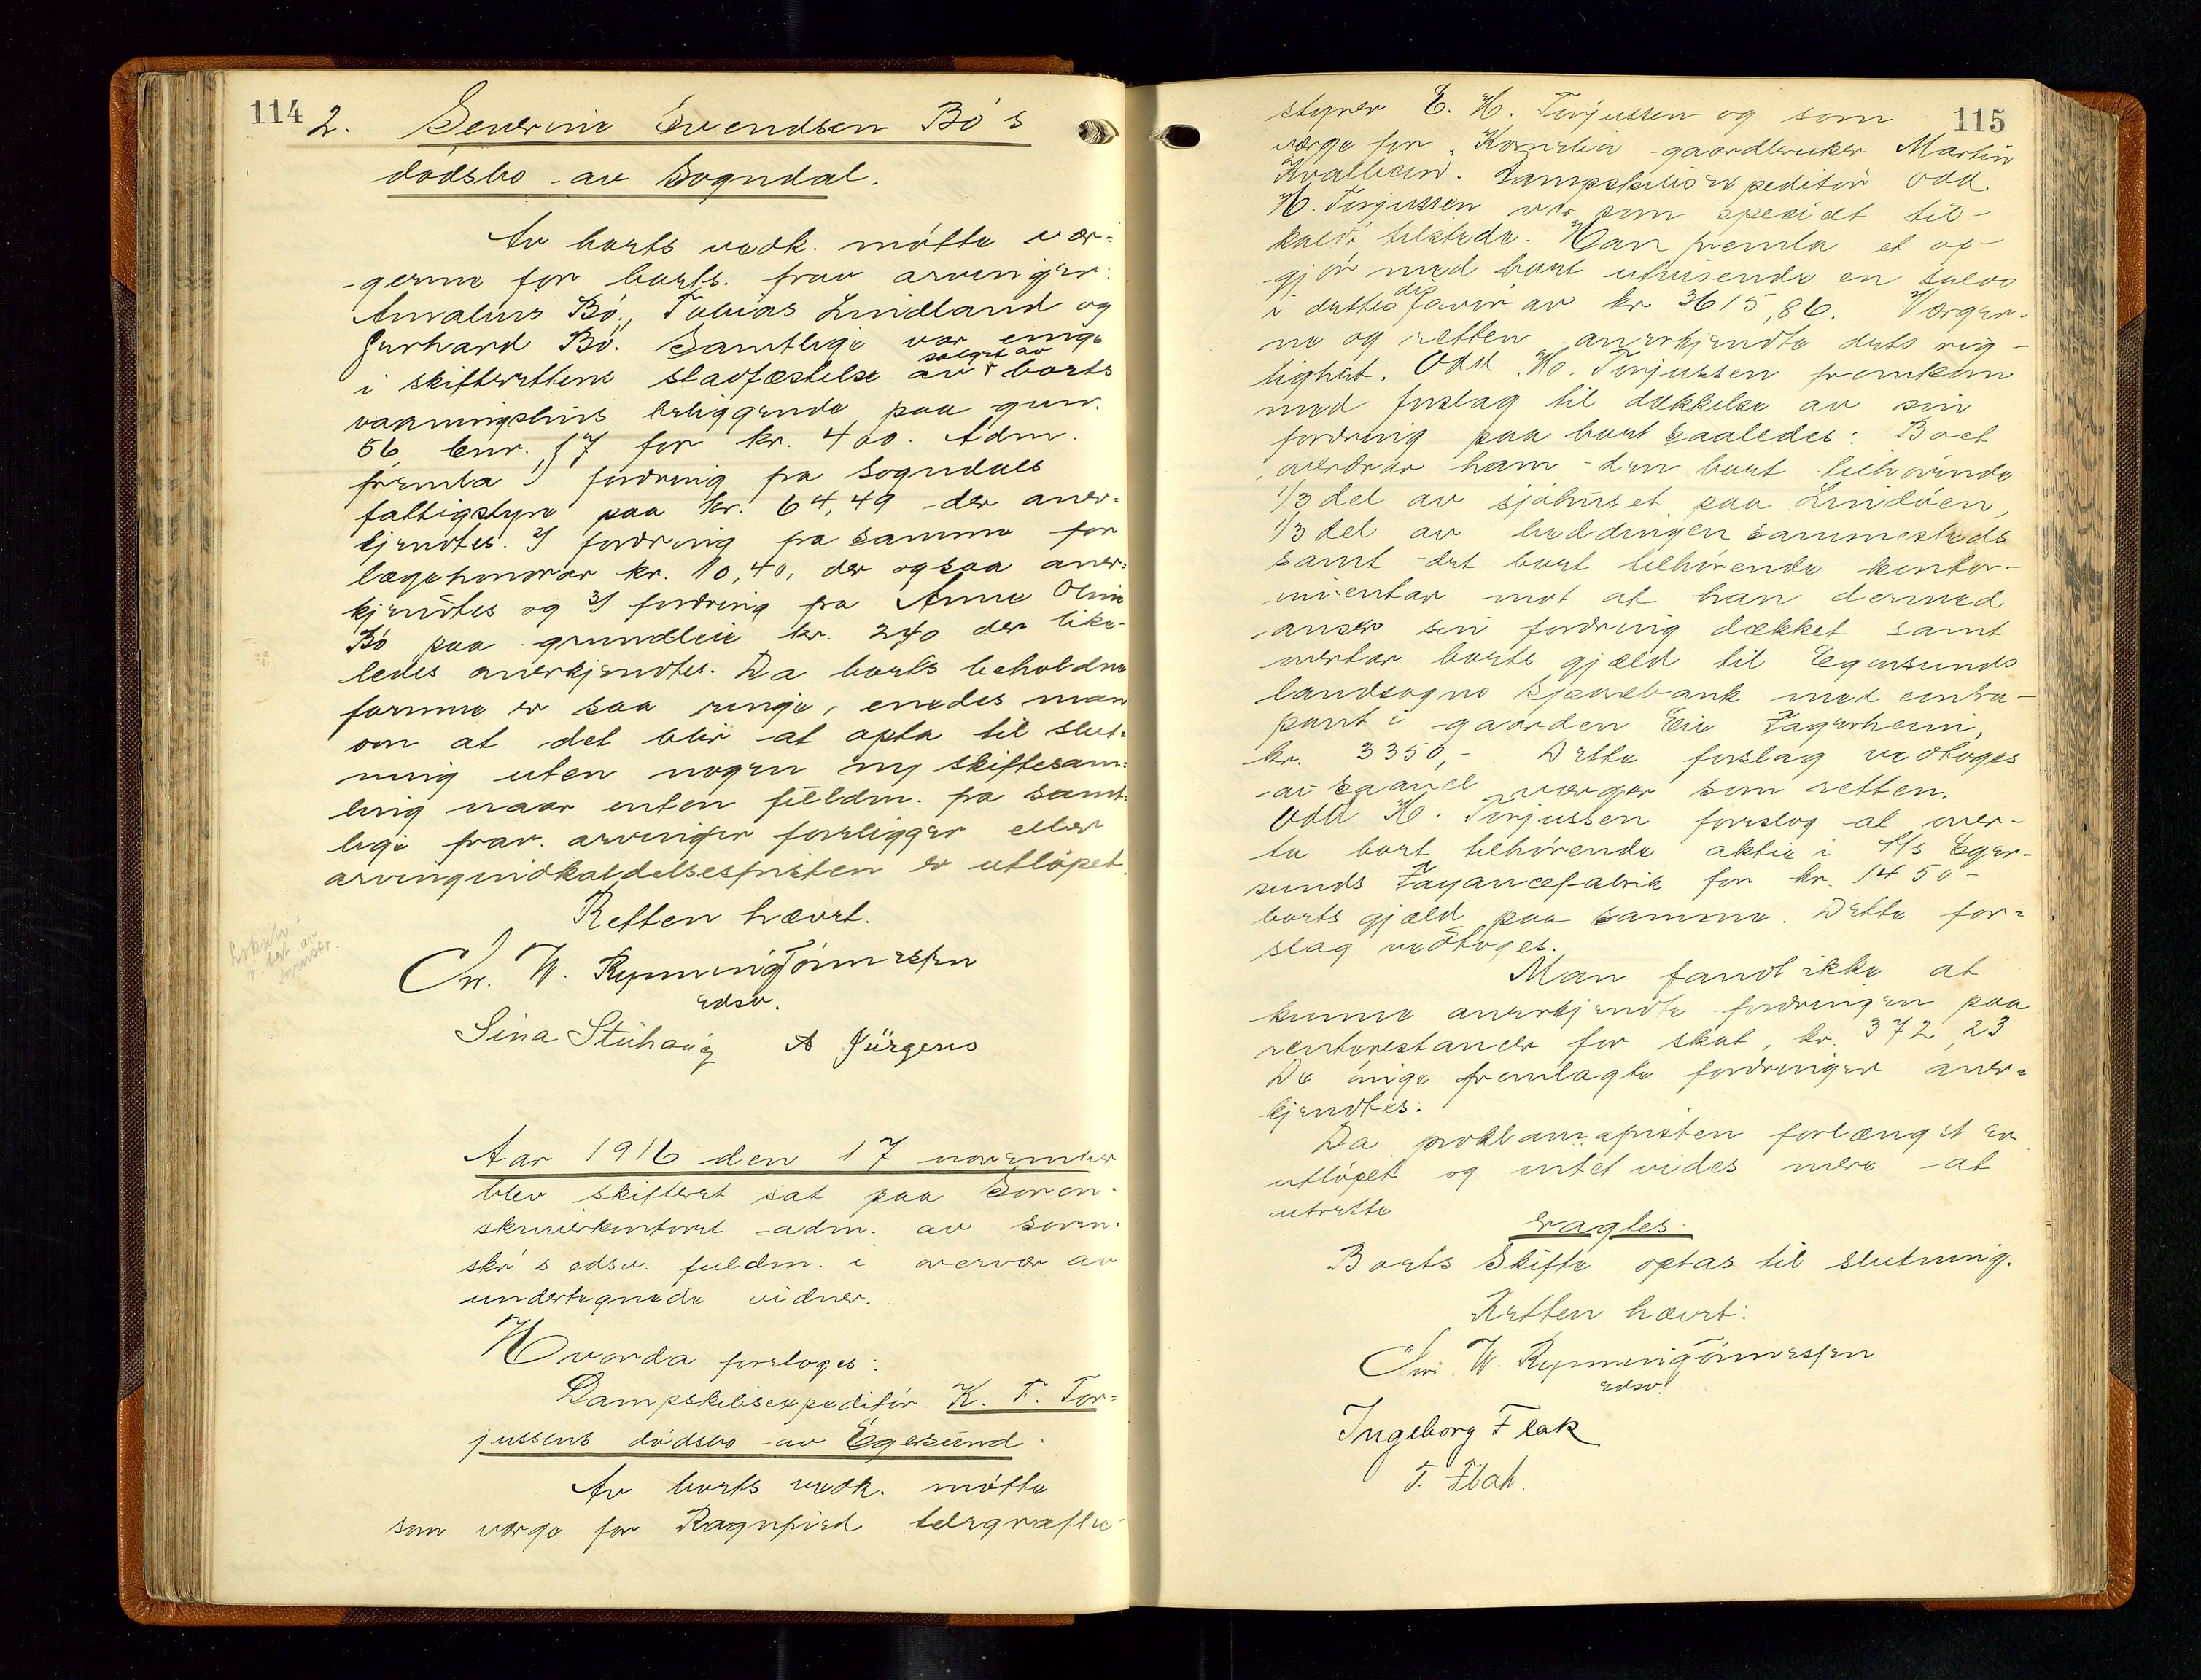 114
2. Severine Svendsen Bö's
dödsbo av Sogndal.
Av boets vedk. mötte vær-
gerne for boets frav arvinger:
Amalius Bö, Tobias Lindland og
Gerhard Bö. Samtlige var enige
i skifterettens stadfæstelse av salget av boets
vaaningshus beliggende paa gnr.
56 bnr. 7 for kr. 400. Adm.
fremla 1) fordring fra Sogndals
fattigstyre paa kr. 64,49 der aner-
kjendtes. 2) fordring fra samme for
lægehonorar kr. 10,40, der ogsaa aner-
kjendtes og 3) fordring fra Anne Oline
Bö paa grundleie kr. 240 der like-
ledes anerkjendtes. Da boets beholdne
formue er saa ringe, enedes man
om at det blir at opta til slut-
ning uten nogen ny skiftesam-
ling naar enten fuldm. fra samt-
lige frav. arvinger foreligger eller
arvingindkaldelsesfristen er utlöpet.
Retten hævet.
Chr. W. Rynning Tönnesen
edsv.
Sina Stuhaug A Jürgens
Aar 1916 den 17 november
blev skifteret sat paa Soren-
skriverkontoret adm. av soren-
skr's edsv. fuldm. i overvær av
undertegnede vidner.
Hvorda foretoges:
Dampskibsexpeditör K. T. Tor-
jussens dödsbo av Egersund.
Av boets vedk. mötte
som verge for Ragnfried telegrafbe-
115
styrer E. H. Torjussen og som
værge for Kornelia gaardbruker Martin
Kvalbein. Dampskibsexpeditör Odd
H. Torjussen var som specielt til-
kaldt tilstede. Han fremla et op-
gjör med boet utvisende en saldo
i dettes disfavör av kr 3615,86. Værger-
ne og retten anerkjendte dets rig-
tighet. Odd H. Torjussen fremkom
med forslag til dækkelse av sin
fordring paa boet saaledes: Boet
overdrar ham den boet tilhörende
1/3 del av sjöhuset paa Lindöen,
1/3 del av beddingen sammesteds
samt det boet tilhörende kontor-
inventar mot at han dermed
anser sin fordring dækket samt
overtar boets gjæld til Egersunds
landsogns Sparebank med contra-
pant i gaarden Eie Fagerheim,
kr. 3350,-. Dette forslag vedtoges
av saavel værger som retten.
Odd H. Torjussen foreslog at over-
ta boet tilhörende aktie i A/S Eger-
sunds Fayancefabrik for kr. 1450-
boets gjæld paa samme. Dette for-
slag vedtoges.
Man fandt ikke at
kunne anerkjendte fordringen paa
renterestancer for skat, kr. 372,23
De övrige fremlagte fordringer aner-
kjendtes.
Da proklamafristen forlængst er
utlöpet og intet vides mere at
utrette
eragtes.
Boets Skifte optas til slutning.
Retten hævet:
Chr. W. Rynning Tönnesen
edsv.
Ingeborg Flak
T. Flak.